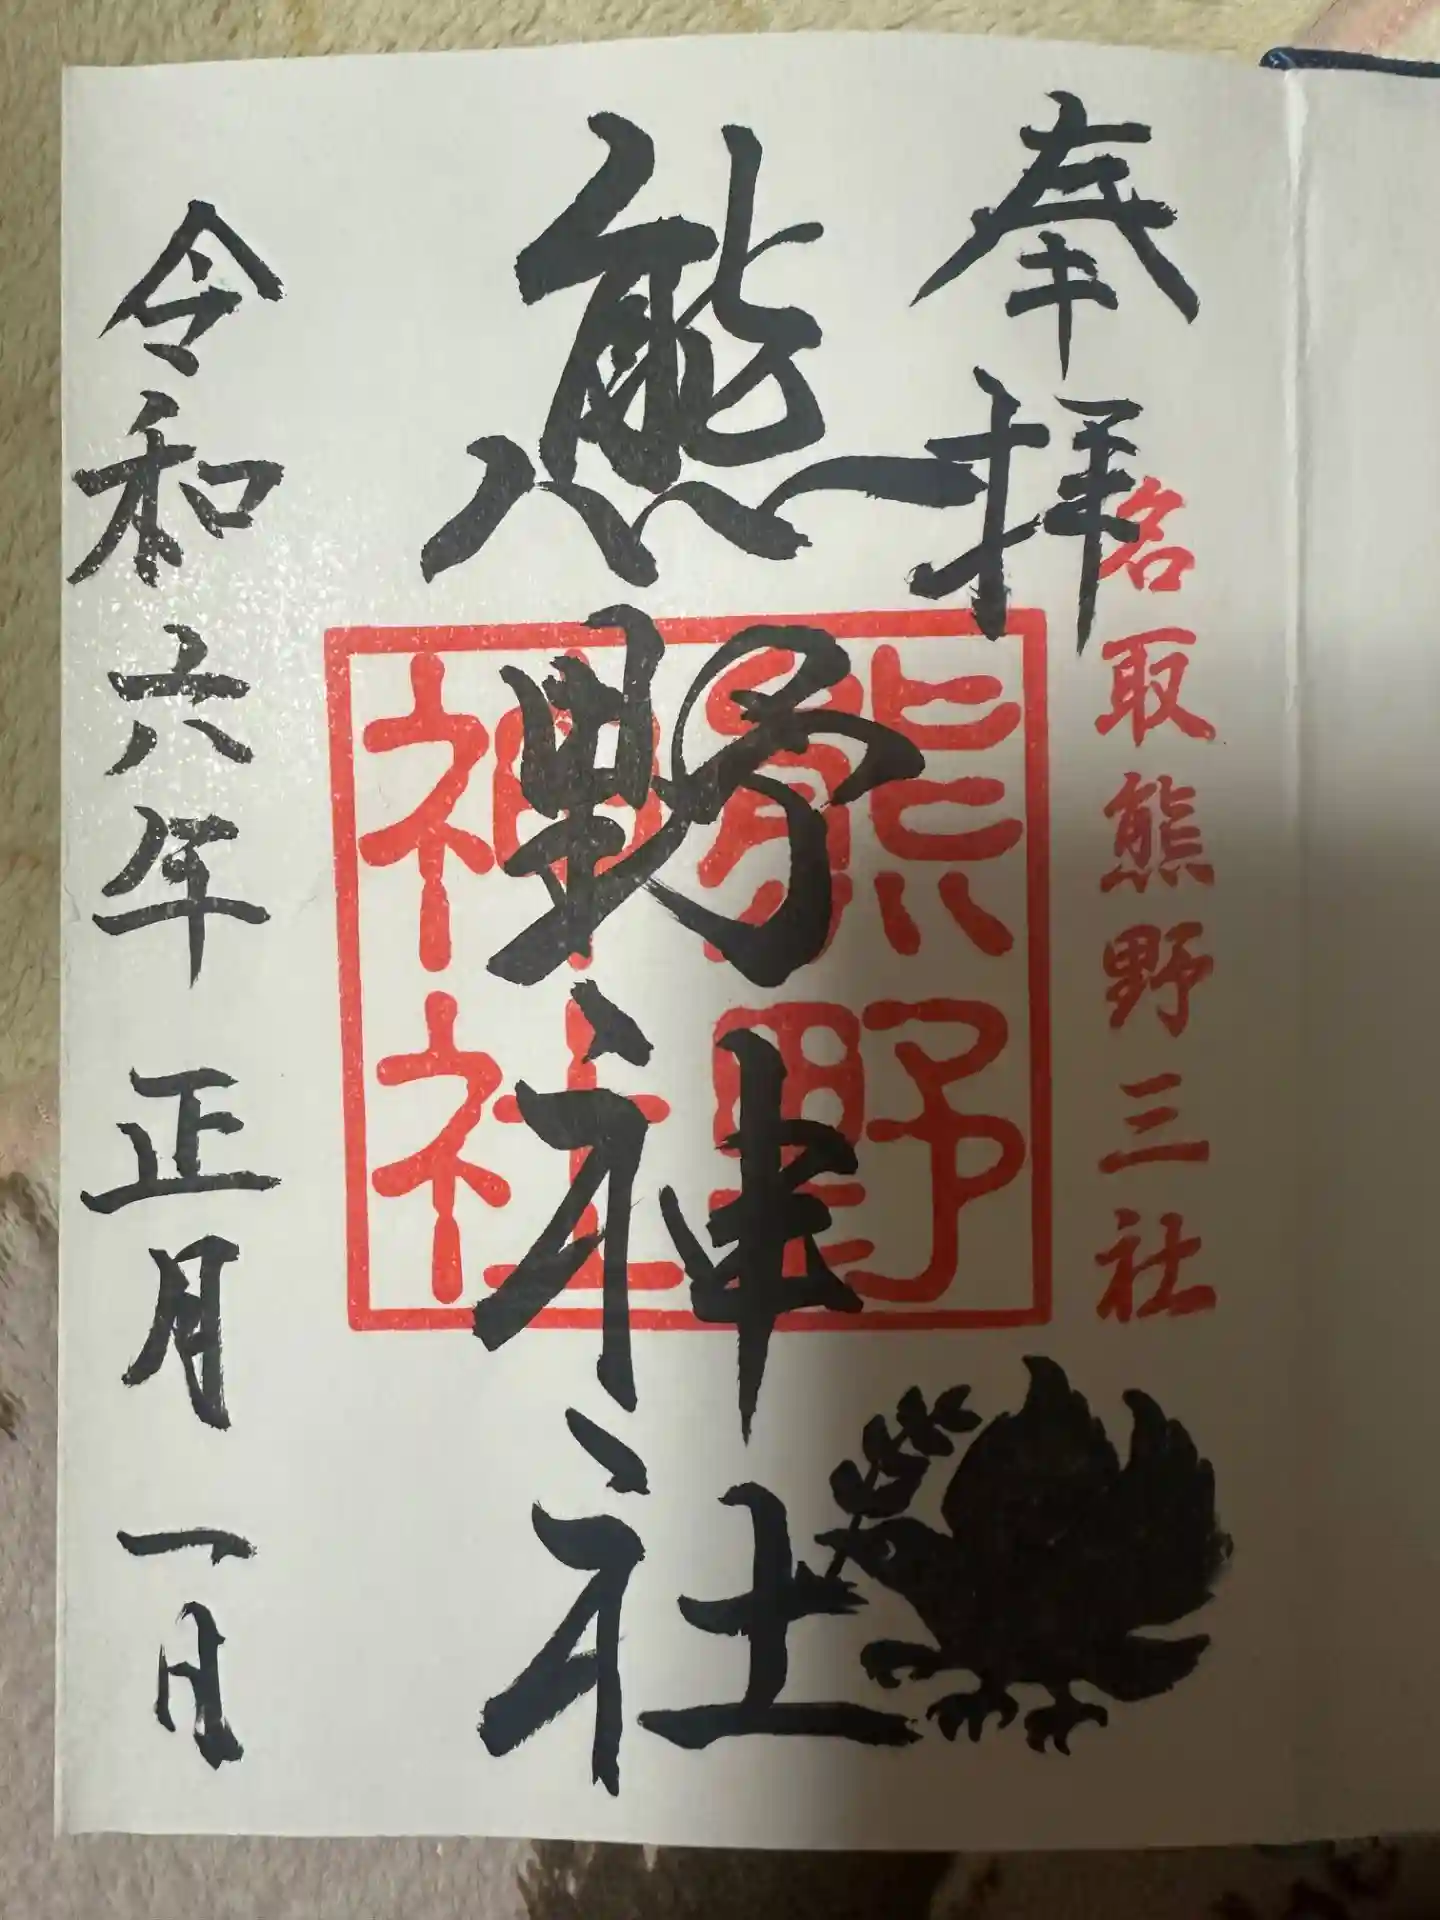 奉拝
名取熊野三社
熊野神社
熊野
神社
令和六年 正月 一日